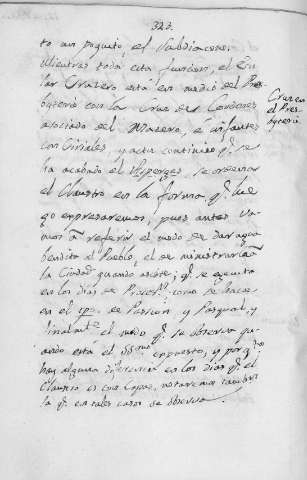 323.
to un poquito, el Subdiacono.
Mientras toda esta funcion, el
lar Cruzero está en medio del Pres-
byterio con la Cruz de
asociado del Macero, é infantes
con Ciriales y acto continuo q.e se
ha acabado el Asperges, se ordena
el Claustro en la forma q.e lue
go expresaremos, pues antes va-
mos á referir el modo de dar agua
bendita al Pueblo, el de ministrarla á
la Ciudad quando asiste; q.e se egecuta
en los dias de Proces.n como se hace
en el tpo. de Pascua y
finalm.te el modo q.e se observa qu-
ando está el SS.mo expuesto, y por q.to
hay alguna diferencia en los dias q.e el
Claustro es con Capas, notaremos tambien
lo q.e en tales casos se observa.
Cruzero en
el Pres-
byterio